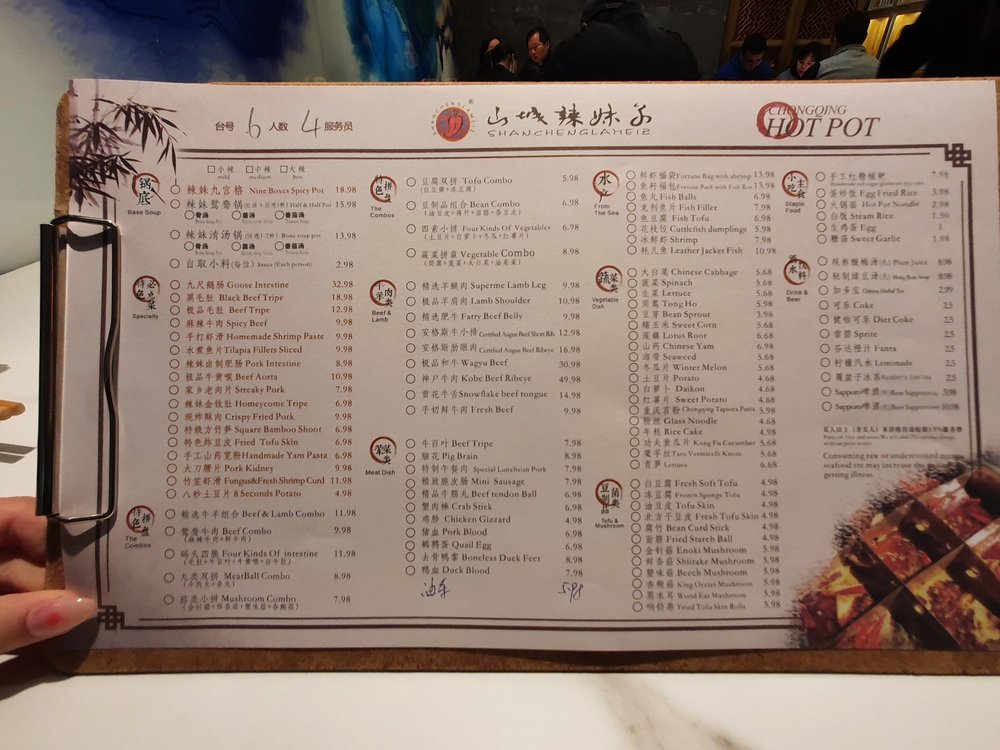 台号 6 人数 4 服务员
SHANCHENGLAMEIZ
山城辣妹子
SHANCHENGLAMEIZ
CHONGQING
HOT POT
锅底
Base Soup
小辣 中辣 大辣
mild medium hot
辣妹九宫格 Nine Boxes Spicy Pot 18.98
辣妹鸳鸯锅 Half & Half Pot 15.98
骨汤 菌汤 番茄汤
辣妹清汤锅 Bone soup pot 13.98
骨汤 菌汤 番茄汤
自取小料(每位) Sauce (Each person) 2.98
特色必点菜
Specialty
九尺鹅肠 Goose Intestine 32.98
黑毛肚 Black Beef Tripe 18.98
极品毛肚 Beef Tripe 12.98
麻辣牛肉 Spicy Beef 9.98
手打虾滑 Homemade Shrimp Paste 9.98
水煮鱼片 Tilapia Fillets Sliced 9.98
辣妹卤制肥肠 Pork Intestine 8.98
极品牛黄喉 Beef Aorta 10.98
家乡老肉片 Streaky Pork 7.98
辣妹金钱肚 Homeycome Tripe 6.98
现炸酥肉 Crispy Fried Pork 9.98
特级方竹笋 Square Bamboo Shoot 6.98
特色炸豆皮 Fried Tofu Skin 6.98
手工山药宽粉 Handmade Yam Pasta 6.98
大刀腰片 Pork Kidney 9.98
竹笙虾滑 Fungus&Fresh Shrimp Curd 11.98
八秒土豆片 8 Seconds Potato 4.98
特色拼盘
The Combos
精选牛羊组合 Beef & Lamb Combo 11.98
鸳鸯牛肉 Beef Combo 9.98
(麻辣牛肉+鲜牛肉)
码头四脆 Four Kinds Of intestine 11.98
(毛肚+牛百叶+牛黄喉+白牛肚)
丸类双拼 MeatBall Combo 8.98
菇类小拼 Mushroom Combo 7.98
(金针菇+鲜香菇+蟹味菇+杏鲍菇)
特色拼盘
The Combos
豆腐双拼 Tofu Combo 5.98
(白豆腐+冻豆腐)
豆制品组合 Bean Combo 6.98
(油豆皮+腐竹+面筋+香豆皮)
四素小拼 Four Kinds Of Vegetables 6.98
(土豆片+白萝卜+冬瓜+红薯片)
蔬菜拼盘 Vegetable Combo 8.98
(茼蒿+菠菜+大白菜+油麦菜)
牛羊肉类
Beef & Lamb
精选羊腿肉 Superme Lamb Leg 9.98
极品羊肩肉 Lamb Shoulder 10.98
精选肥牛 Fatty Beef Belly 9.98
安格斯牛小排 Certified Augus Beef Short Rib 12.98
安格斯肋眼肉 Certified Augus Beef Ribeye 16.98
极品和牛 Wagyu Beef 30.98
神户牛肉 Kobe Beef Ribeye 49.98
雪花牛舌 Snowflake beef tongue 14.98
手切鲜牛肉 Fresh Beef 9.98
荤菜类
Meat Dish
牛百叶 Beef Tripe 7.98
脑花 Pig Brain 8.98
特制午餐肉 Special Luncheon Pork 7.98
精致脆皮肠 Mini Sausage 7.98
精品牛筋丸 Beef tendon Ball 6.98
蟹肉棒 Crab Stick 6.98
鸡胗 Chicken Gizzard 4.98
猪血 Pork Blood 6.98
鹌鹑蛋 Quail Egg 6.98
去骨鸭掌 Boneless Duck Feer 8.98
鸭血 Duck Blood 7.98
5.98
水之味
From The Sea
鲜虾福袋 Fortune Bag with shrimp 13.98
鱼籽福包 Fortune Pack with Fish Roe 13.98
鱼丸 Fish Balls 6.98
龙利鱼片 Fish Fillet 7.98
鱼豆腐 Fish Tofu 6.98
花枝饺 Cuttlefish dumplings 5.98
冰鲜虾 Shrimp 7.98
耗儿鱼 Leather Jacker Fish 10.98
蔬菜类
Vegetable Dish
大白菜 Chinese Cabbage 5.68
菠菜 Spinach 5.68
生菜 Lettuce 5.68
茼蒿 Tong Ho 5.98
豆芽 Bean Sprout 3.98
糯玉米 Sweet Corn 5.68
莲藕 Lotus Root 6.68
山药 Chinese Yam 6.98
海带 Seaweed 5.68
冬瓜片 Winter Melon 5.68
土豆片 Potato 4.68
白萝卜 Daikon 4.68
红薯片 Sweet Potato 4.68
重庆苕粉 Chongqing Tapioca Pasta 5.98
粉丝 Glass Noodle 4.68
年糕 Rice Cake 4.98
功夫黄瓜片 Kung Fu Cucumber 5.68
魔芋丝 Taro Vermicelli Knots 5.68
青笋 Lettuce 6.68
豆制品菌类
Tofu & Mushroom
白豆腐 Fresh Soft Tofu 4.98
冻豆腐 Frozen Sponge Tofu 4.98
油豆皮 Tofu Skin 4.98
北方干豆皮 Fresh Tofu Skin 4.98
腐竹 Bean Curd Stick 4.98
面筋 Fried Starch Ball 4.98
金针菇 Enoki Mushroom 5.98
鲜香菇 Shiitake Mushroom 5.98
蟹味菇 Beech Mushroom 5.98
杏鲍菇 King Oyster Mushroom 5.98
黑木耳 Wood Ear Mushroom 5.98
响铃卷 Fried Tofu Skin Rolls 5.98
小吃主食
Staple Food
手工红糖糍粑 7.98
蛋炒饭 Egg Fried Rice 3.98
火锅面 Hot Pot Noodle 2.98
白饭 Steam Rice 1.50
生鸡蛋 Egg 1
糖蒜 Sweet Garlic 1.98
酒水饮料
Drink & Beer
现熬酸梅汤(扎) Plum Juice 8.98
秘制绿豆汤(扎) Mung Bean Soup 8.98
加多宝 Chinese Herbal Tea 2.99
可乐 Coke 2.5
健怡可乐 Diet Coke 2.5
雪碧 Sprite 2.5
芬达橙汁 Fanta 2.5
柠檬汽水 Lemonade 2.5
覆盆子冰茶 2.5
Sapporo啤酒
Sapporo啤酒
Consuming raw or undercooked meats,
seafood etc may increase the
getting illness.